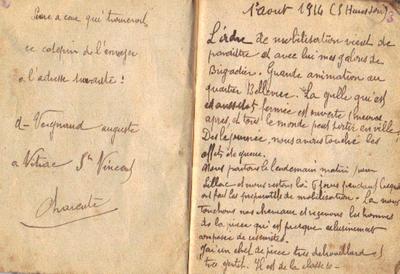 Prière à ceux qui trouveront
ce calepin de l'envoyer
à l'adresse suivante :
d- Vergnaud auguste
a Vitrac St Vincent
Charente
1er aout 1914 (5 heures soir)
L'ordre de mobilisation vient de
paraître et avec lui mes galons de
Brigadier. Grande animation au
quartier Bellevue. La grille qui est
aussitot fermée est ouverte heures
après, et tout le monde peut sortir en ville
Dès la journée, nous avons touché les
effets de guerre.
Nous partons le lendemain matin pour
et nous restons là jours pendant
ont fait les préparatifs de mobilisation. La nous
touchons nos chevaux et reçevons les hommes
de la pièce qui est presque exclusivement
composée de reservistes.
J'ai un chef de pièce très débrouillard et
très gentil. Il est de la classe